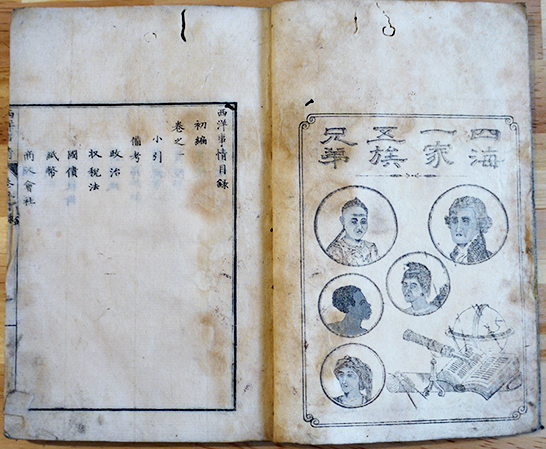 四海
一家
五族
兄弟
西洋事情目録
初編
巻之一
小引
備考
政治
収税法
國債
紙幣
商人會社